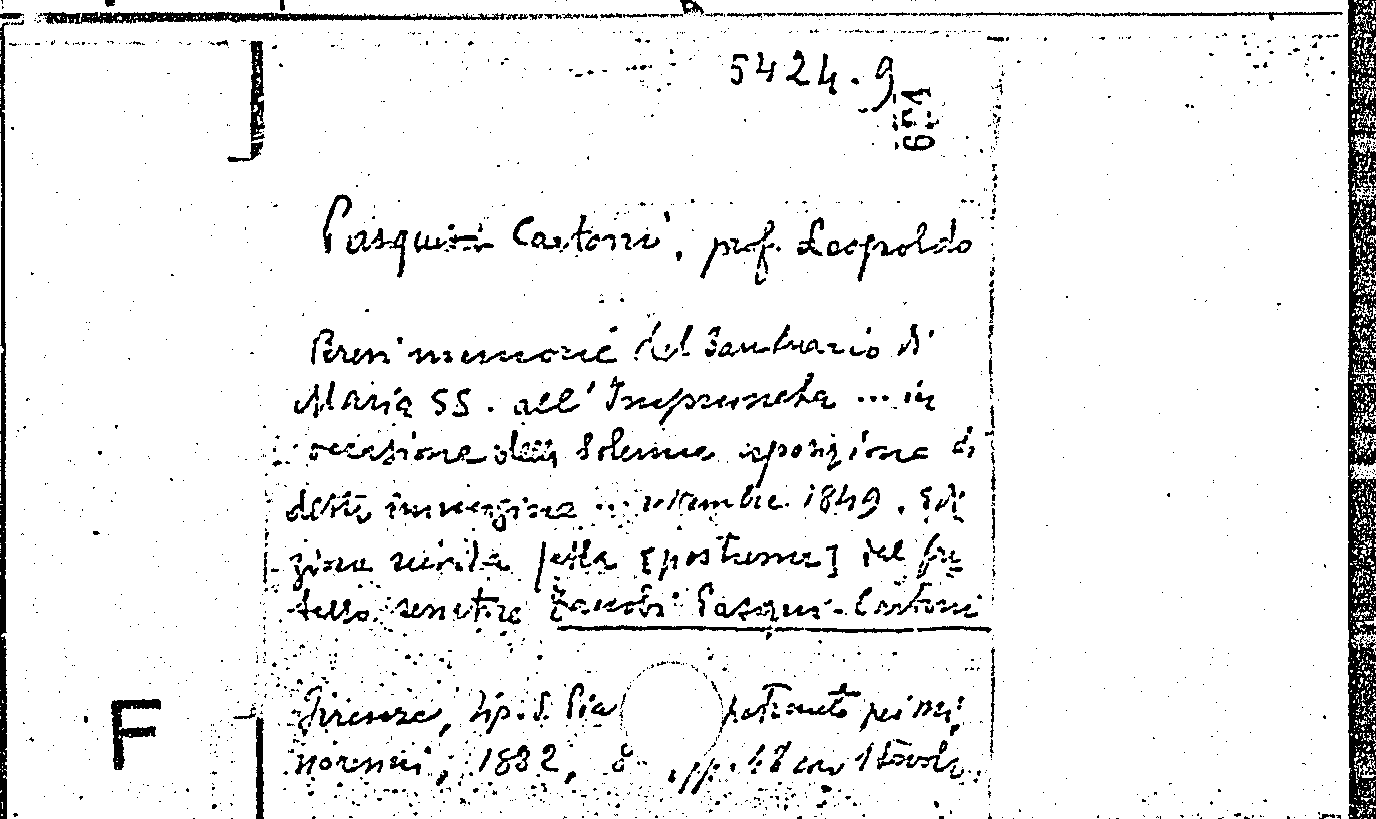 5424.9
Pasqui Cartoni, prof. Leopoldo
Brevi memorie del Santuario di
Maria SS. all'Impruneta ... in
occasione della Solenne esposizione di
detta immagine ... 1849. Edi
zione riveduta [postuma] dal fra
tello senatore Zanobi Pasqui-Cartoni
Firenze, tip. d. Pia patronato pei mi,
norenni, 1882, 8° , pp. 48 con 1 tavola.
F